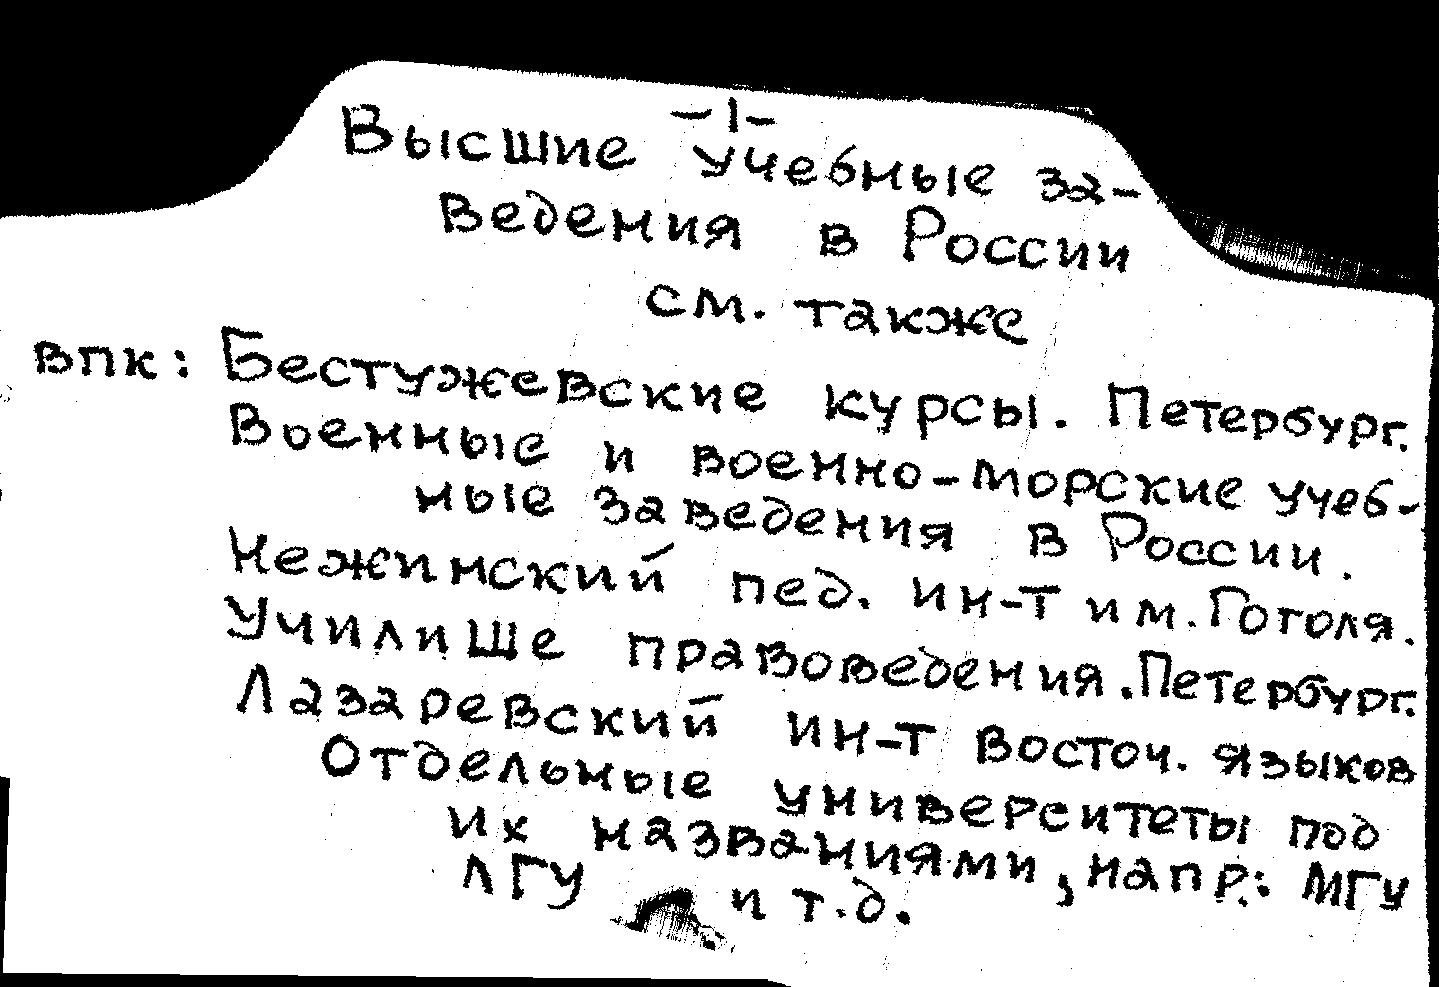 -1-
Высшие учебные за-
ведения в России
см. также
ВПК: Бестужевские курсы. Петербург.
Военные и военно-морские учеб-
ные заведения в России.
Нежинский пед. ин-т им. Гоголя.
Училише правоведения. Петербург.
Лазаревский ин-т Восточ. языков
Отдельные университеты под
их названиями, напр.: МГУ
ЛГУ и т.д.